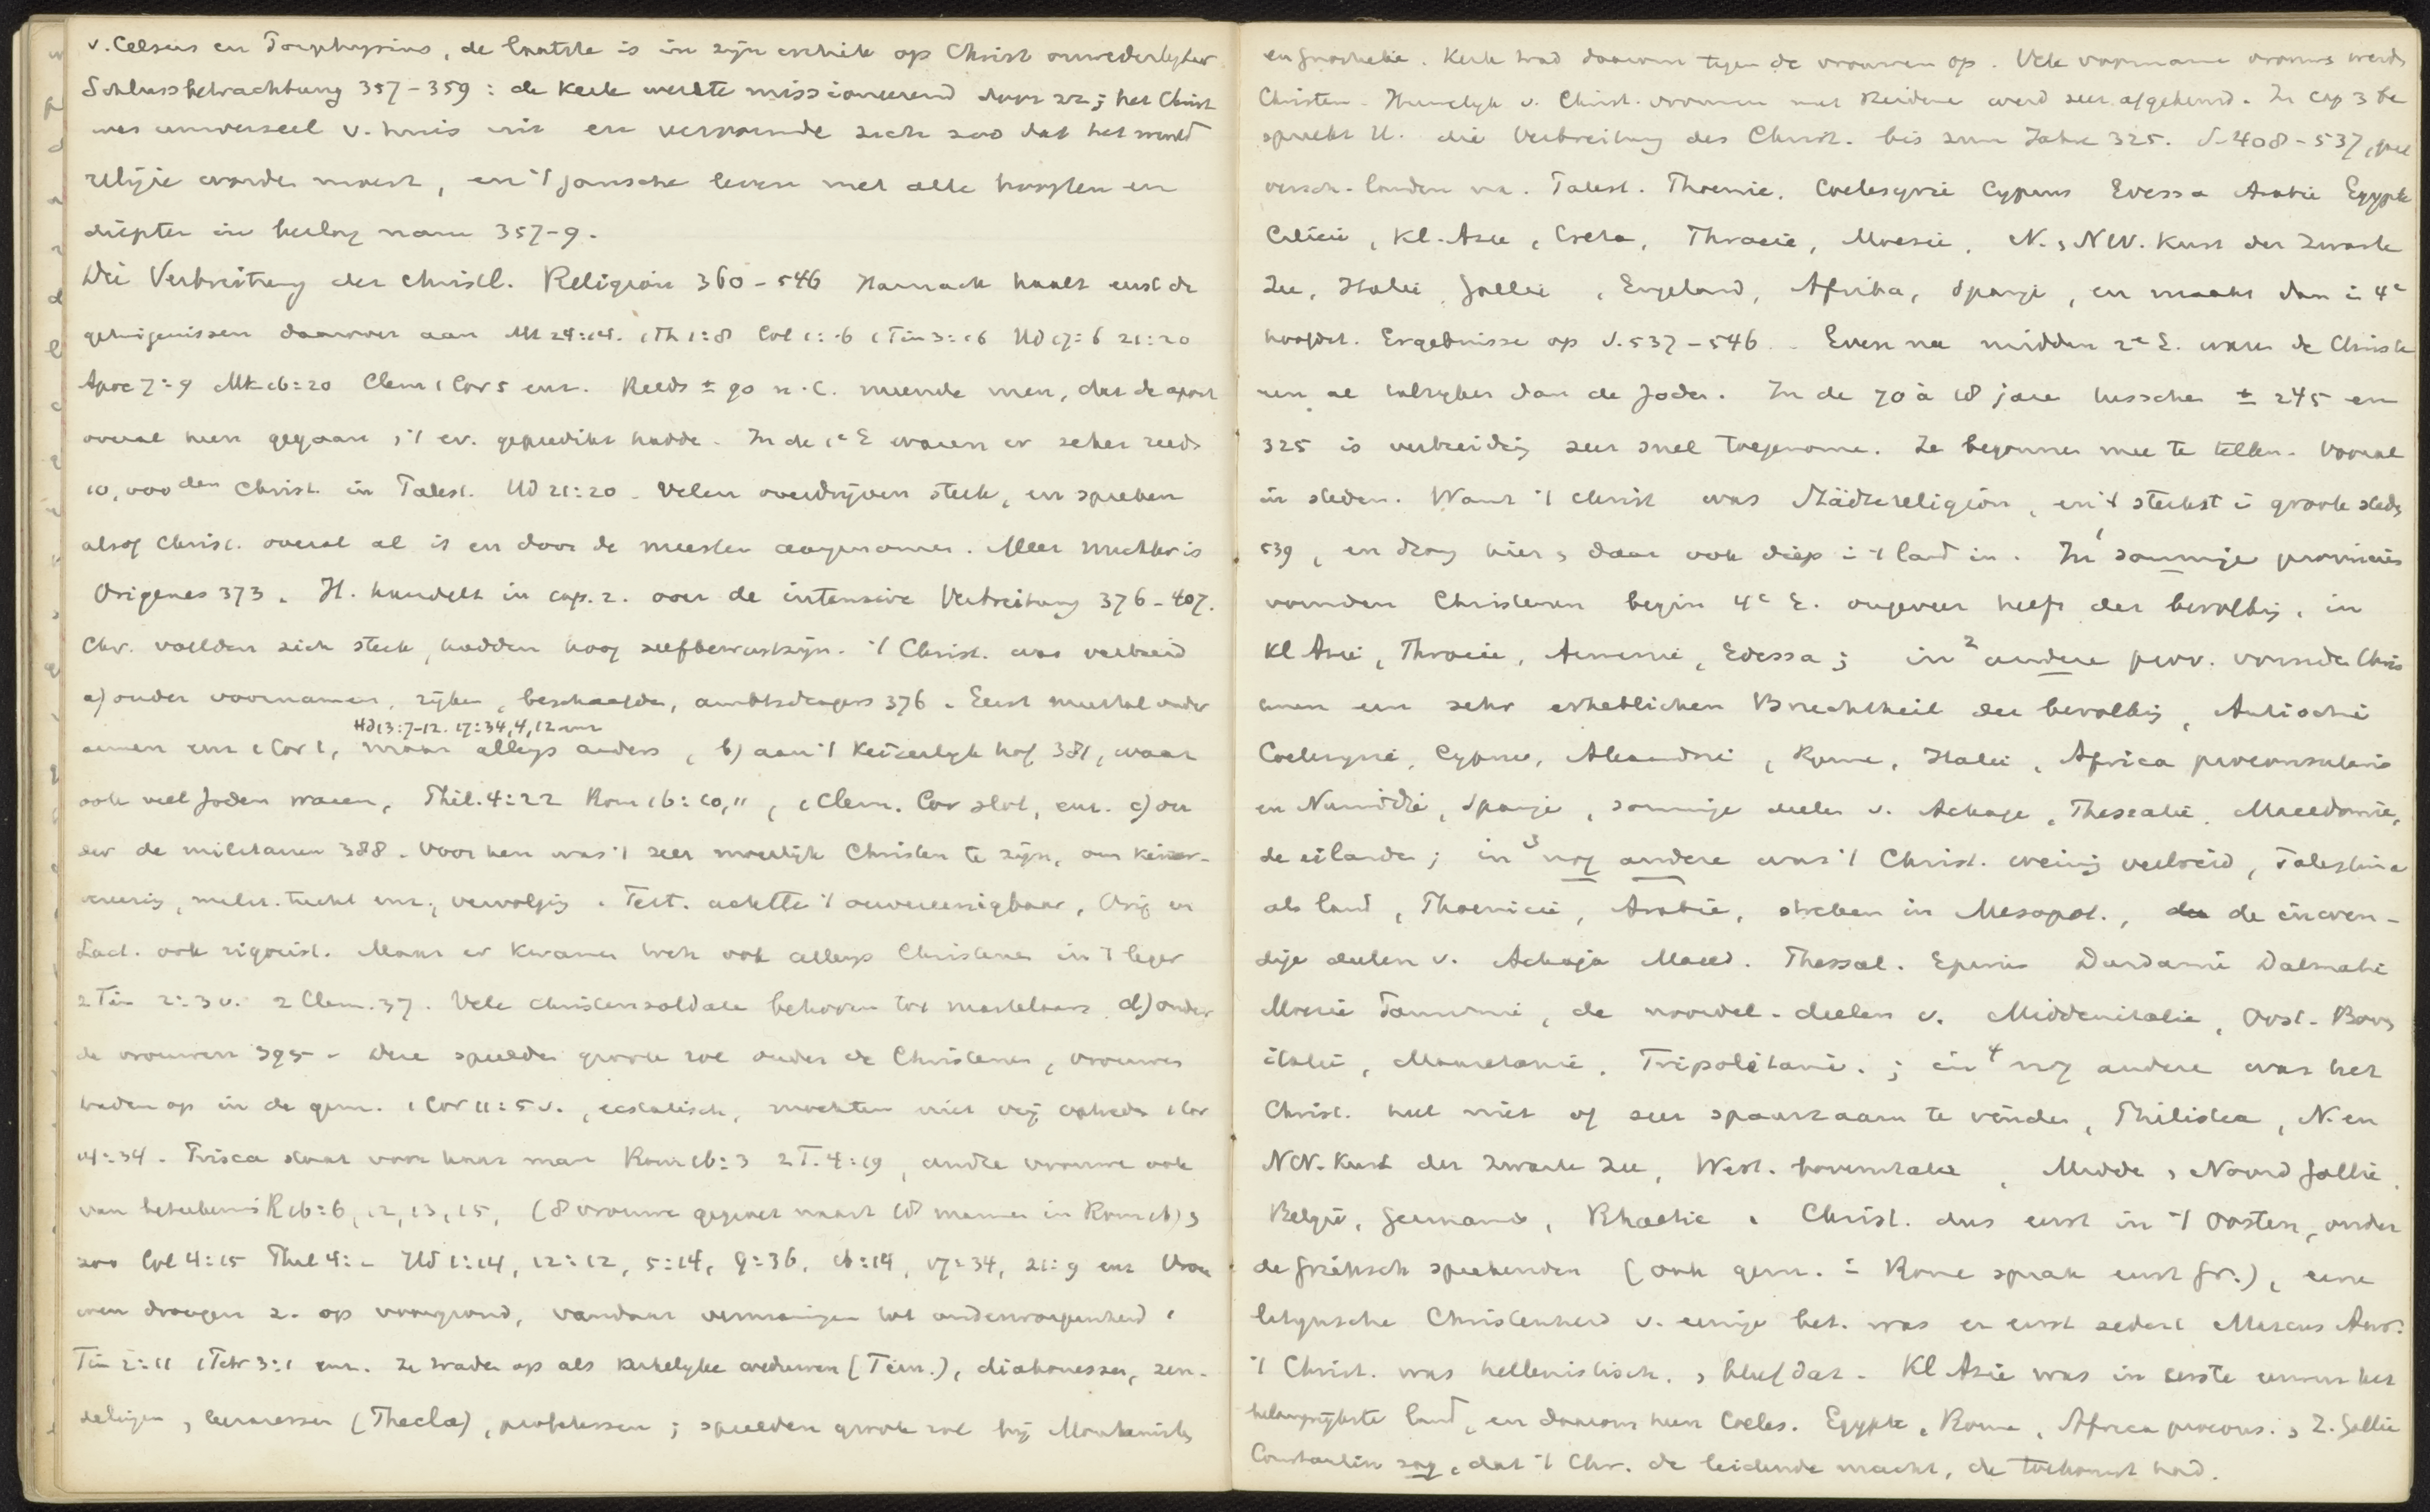 v. Celsus en Porphyrius, de laatste is in zijn critiek op Christ. onwederlegbaar
Schlussbetrachtung 357-359: de Kerk werkte missioneerend door zz; het Christ
was universeel v. huis uit en vervormde zich zoo dat het wereld
religie worden moest, en 't gansche leven met alle hoogten en
diepten in beslag nam 357-9.
Die Verbreitung der christl. Religion 360-546 Harnack haalt eerst de
getuigenissen daarvoor aan Mt 24:14. 1Th 1:8 Col 1:6 1Tim 3:16 HD 17:6 21:20
Apoc 7:9 Mk 16:20 Clem 1 Cor 5 enz. Reeds ± 90 n.C. meende men, dat de apost
overal heen gegaan , 't ev. gepredikt hadde. In de 1e E waren er zeker reeds
10,000den Christ. in Palest. HD 21:20. Velen overdrijven sterk, en spreken
alsof Christ. overal al is en door de meesten aangenomen. Meer nuchter is
Origenes 373. H. handelt in cap. 2. over de intensive Verbreitung 376-407.
Chr. voelden zich sterk, hadden hoog zelfbewustzijn. 't Christ. was verbreid
a) onder voornamen, rijken, beschaafden, ambtsdragers 376. Eerst meestal onder
HD 13:7-12. 17:34, 4, 12 enz
armen enz 1 Cor 1, maar allengs anders, b) aan 't Keizerlijk hof 381, waar
ook veel Joden waren, Phil. 4:22 Rom 16:10,11, 1 Clem. Cor slot, enz. c) on
der de militairen 388. Voor hen was 't zeer moeilijk Christen te zijn, om keizer-
vereering, milit. tucht enz., vervolging. Tert. achtte 't onvereenigbaar, Orig en
Lact. ook rigorist. Maar er kwamen toch ook allengs Christenen in 't leger
2 Tim 2:3 v. 2 Clem. 37. Vele christensoldaten behooren tot martelaars. d) onder
de vrouwen 395. Deze speelden groote rol onder de Christenen, vrouwen
traden op in de gem. 1 Cor 11:5 v., ecstatisch, mochten niet vrij optreden 1 Cor
14:34. Prisca staat voor haar man Rom 16:3 2 T. 4:19, andre vrouwen ook
van beteekenis R 16:6, 12, 13, 15, (8 vrouwen gegroet naast 18 mannen in Rom 16),
zoo Col 4:15 Phil 4:2 HD 1:14, 12:12, 5:14, 9:36, 16:14, 17:34, 21:9 enz Vrou
wen drongen z. op voorgrond, vandaar vermaningen tot onderworpenheid 1
Tim 2:11 1 Petr 3:1 enz. Ze traden op als kerkelijke weduwen (Tim.), diakonessen, zen-
delingen , leeraressen (Thecla), profetessen; speelden groote rol bij Montanisten
en gnostieke. Kerk trad daarom tegen de vrouwen op. Vele voorname vrouwen werden
Christen. Huwelijk v. Christ. vrouwen met Heidenen werd zeer afgekeurd. In cap 3 be
spreekt H. die Verbreitung des Christ. bis zum Jahre 325. S. 408-537, gaat
versch. landen na. Palest. Phoenic. Coelesyrië Cyprus Edessa Arabië Egypte
Cilicië, Kl. Azië, Creta, Thracië, Moesië, N. , NW. Kust der Zwarte
Zee, Italië, Gallië, Engeland, Afrika, Spanje, en maakt dan in 4e
hoofdst. Ergebnisse op S. 537-546. Even na midden 2e E. waren de Christe
nen al talrijker dan de Joden. In de 70 à 18 jaren tusschen ± 245 en
325 is verbreiding zeer snel toegenomen. Ze begonnen mee te tellen. Vooral
in steden. Want 't christ was Städtereligion, en 't sterkst in groote steden
539, en drong hier , daar ook diep in 't land in. In 1 sommige provinciën
vormden Christenen begin 4e E. ongeveer helft der bevolking, in
Kl Azië, Thracië, Armenië, Edessa; in 2 andere prov. vormden Chris
tenen een sehr erheblichen Bruchtheil der bevolking, Antiochië
Coelesyrië, Cyprus, Alexandrië, Rome, Italië, Africa proconsularis
en Numidië, Spanje, sommige deelen v. Achaje, Thessalië, Macedonië,
de eilanden; in 3 nog andere was 't Christ. weinig verbreid, Palestina
als land, Phoenicië, Arabië, streken in Mesopot., de inwen-
dige deelen v. Achaja Maced. Thessal. Epirus Dardanië Dalmatië
Moesië Pannonië, de noordel. deelen v. Middenitalië, Oost. Boven
italië, Mauretanië, Tripolitanië.; in 4 nog andere was het
Christ. heel niet of zeer spaarzaam te vinden, Philistea, N. en
NW. Kust der Zwarte Zee, West. bovenitalië, Midde , Noord Gallië,
België, Germanië, Rhaetië. Christ. dus eerst in 't Oosten, onder
de grieksch sprekenden (ook gem. in Rome sprak eerst Gr.), eene
latijnsche Christenheid v. eenige bet. was er eerst sedert Marcus Aur.
't Christ. was hellenistisch, , bleef dat. Kl Azië was in eerste eeuwen het
belangrijkste land, en daarom heen Coeles. Egypte, Rome, Africa procons. , Z. Gallië
Constantin zag, dat 't Chr. de leidende macht, de toekomst had.